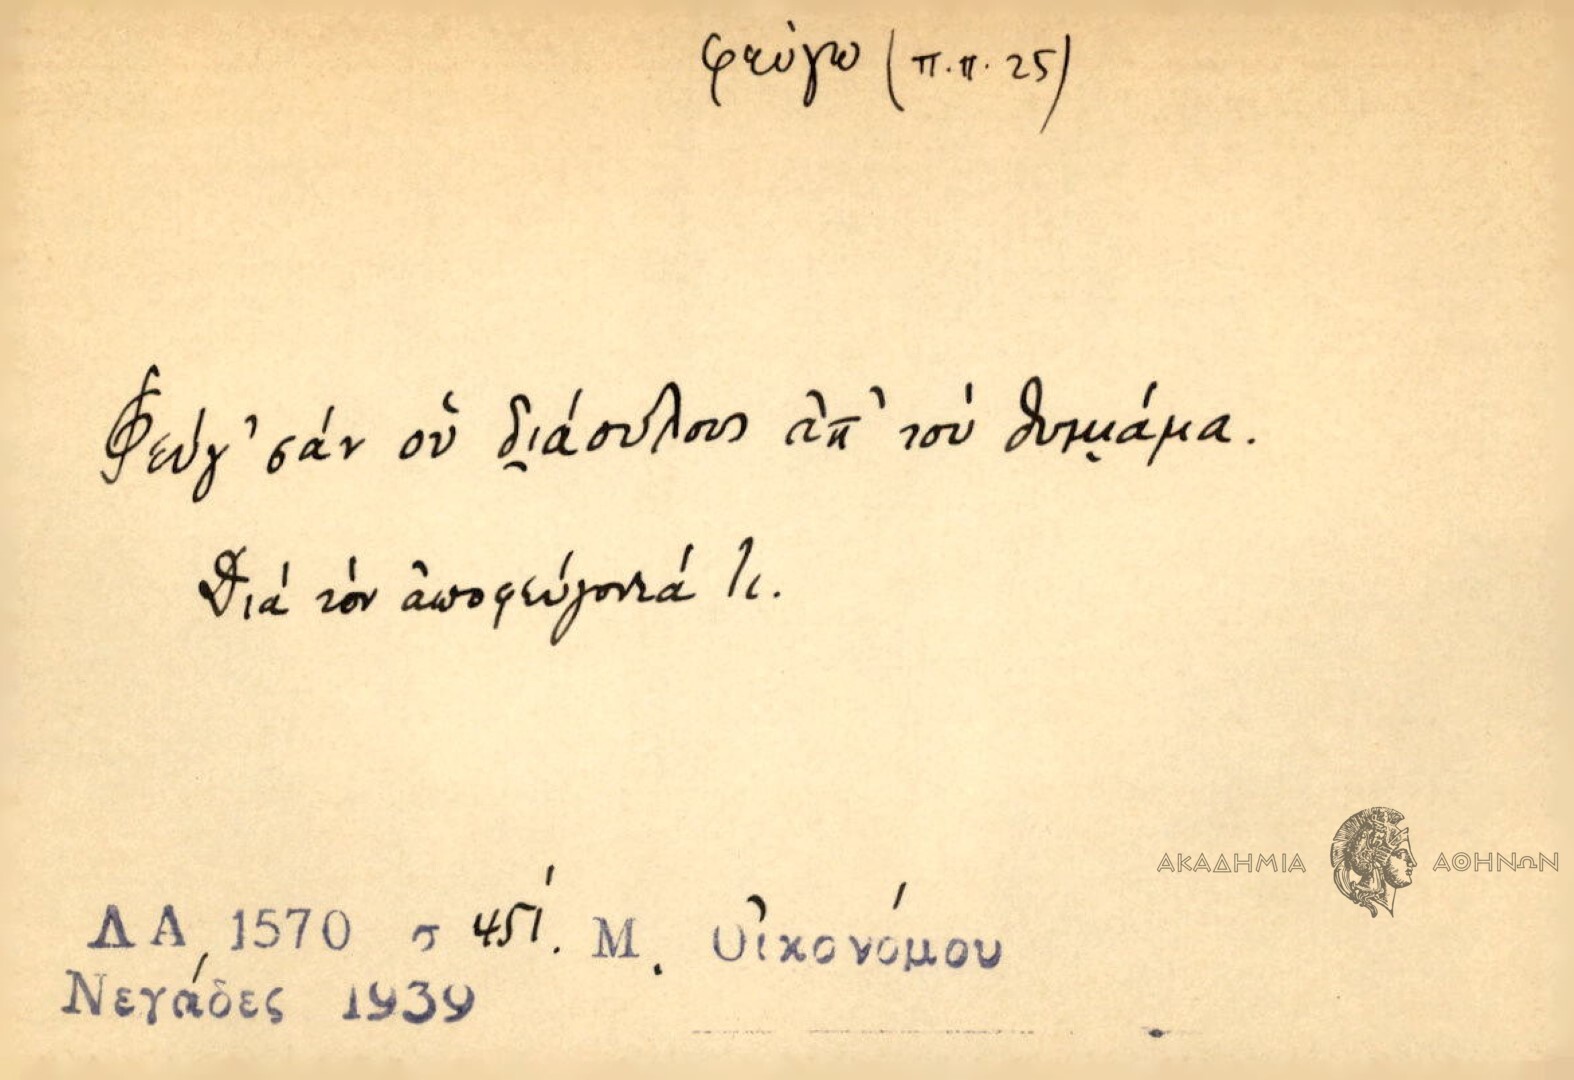 φεύγω (π.π. 25)
Φεύγ' σάν οὑ δ̮ιάουλους ἀπ' τού θυμν̮άμα.
Διά τόν ἀποφεύγοντά τι.
ΑΚΑΔΗΜΙΑ ΑΘΗΝΩΝ
ΛΑ 1570 σ 451. Μ. Οἰκονόμου
Νεγάδες 1939